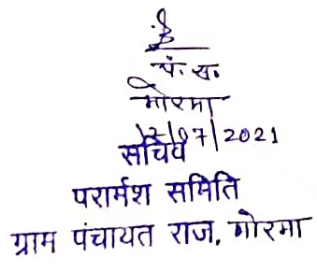 पं. स.
गोरमा
17/07/2021
सचिव
परार्मश समिति
ग्राम पंचायत राज, गोरमा